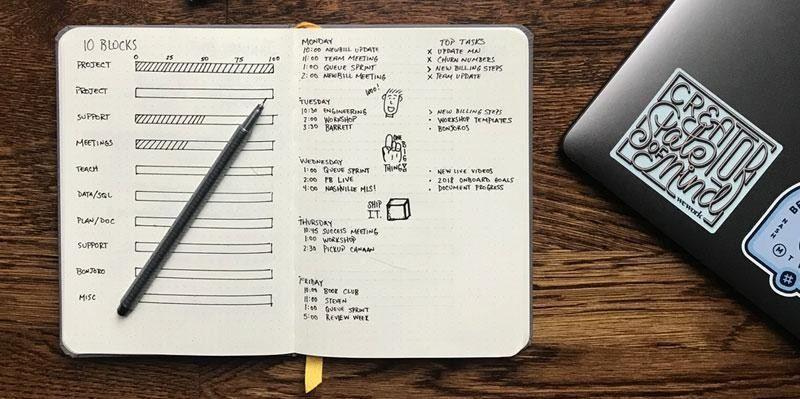 10 BLOCKS
0 25 50 75 100
PROJECT
PROJECT
SUPPORT
MEETINGS
TEACH
DATA/SQL
PLAN/DOC
SUPPORT
BONJORO
MISC
MONDAY
10:00 NEWBILL UPDATE
11:00 TEAM MEETING
1:00 QUEUE SPRINT
2:00 NEWBILL MEETING
TOP TASKS
X UPDATE MN
X CHURN NUMBERS
> NEW BILLING STEPS
X TEAM UPDATE
WOO!
TUESDAY
10:30 ENGINEERING
2:00 WORKSHOP
3:30 BARRETT
> NEW BILLING STEPS
• WORKSHOP TEMPLATES
• BONJOROS
ONE
BIG
THING
WEDNESDAY
1:00 QUEUE SPRINT
2:00 FB LIVE
4:00 NASHVILLE MLS!
• NEW LIVE VIDEOS
• 2018 ONBOARD GOALS
• DOCUMENT PROGRESS
SHIP
IT.
THURSDAY
10:45 SUCCESS MEETING
1:00 WORKSHOP
2:30 PICKUP CANAAN
FRIDAY
10:00 BOOK CLUB
11:00 STEVEN
1:00 QUEUE SPRINT
5:00 REVIEW WEEK
CREATOR
State
of Mind
wework
#